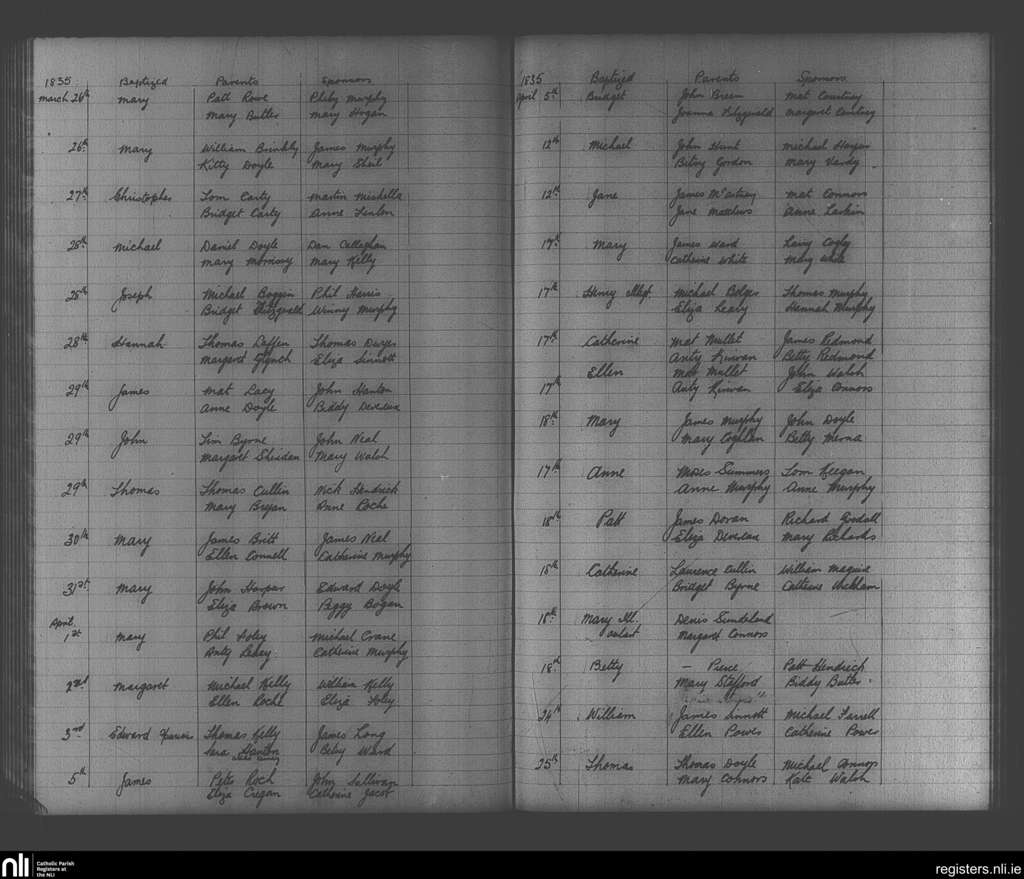 1835 Baptized Parents Sponsors
March 26th Mary Patt Rowe Philip Murphy
Mary Butler Mary Hogan
26th Mary William Brinkly James Murphy
Kitty Doyle Mary Sheil
27th Christopher Tom Carty Martin
Bridget Carty Anne Fenlon
28th Michael Daniel Doyle Dan Callaghan
Mary Morrissy Mary Kelly
28th Joseph Michael Boggan Phil Harris
Bridget Fitzgerald Winny Murphy
28th Hannah Thomas Laffen Thomas Dwyer
Margaret Eliza Sinnott
29th James Mat Lacy John Hanton
Anne Doyle Biddy Devereux
29th John Tim Byrne John Neal
Margaret Sheridan Mary Walsh
29th Thomas Thomas Cullin Nick Hendrick
Mary Bryan Anne Roche
30th Mary James Britt James Neal
Ellen Connell Catharine Murphy
31st Mary John Harper Edward Doyle
Eliza Brown Peggy Bogan
April
1st Mary Phil Foley Michael Crane
Anty Leary Catherine Murphy
2nd Margaret Michael Kelly William Kelly
Ellen Roche Eliza Foley
3rd Edward Thomas Kelly James Long
Sara Hanton Betsy Ward
5th James Peter Roch John Sullivan
Eliza Cregan Catherine Jacob
1835 Baptized Parents Sponsors
April 5th Bridget John Breen Mat Courtney
Joanna Fitzgerald Margaret Courtney
12th Michael John Hunt Michael
Betsy Gordon Mary Vardy
12th Jane James McCartney Mat Connors
Jane Matthews Anne Larkin
17th Mary James Ward Larry Cogley
Catherine White Mary White
17th Henry Illegt. Michael Bolger Thomas Murphy
Eliza Leary Hannah Murphy
17th Catherine Mat Mullet James Redmond
Anty Kirwan Betty Redmond
Ellen Mat Mullet John Walsh
17th Anty Kirwan Eliza Connors
18th Mary James Murphy John Doyle
Mary Coghlan Betty Merna
17th Anne Moses Summers Tom Keegan
Anne Murphy Anne Murphy
18th Patt James Doran Richard Goodall
Eliza Devereux Mary Richards
18th Catherine Laurence Cullin William Maguire
Bridget Byrne Catherine Wickham
18th Mary Ill. Denis Sunderland
Margaret Connors
18th Betty — Pierce Patt Hendrick
Mary Stafford Biddy Butler
24th William James Sinnott Michael Farrell
Ellen Power Catherine Power
25th Thomas Thomas Doyle Michael Connors
Mary Connors Kate Walsh
nli Catholic Parish
Registers at
the NLI
registers.nli.ie